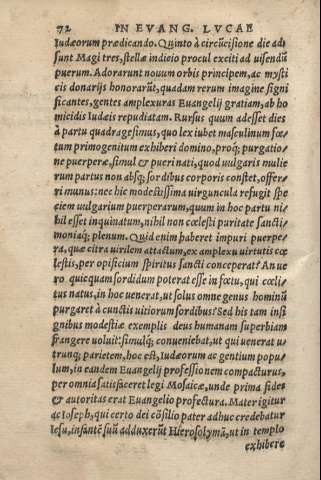 72 IN EVANG. LVCAE
Iudæorum prædicando. Quinto à circũcisione die ad⸗
sunt Magi tres, stellæ indicio procul exciti ad uisendũ
puerum. Adorarunt nouum orbis principem, ac mysti
cis donarijs honorarũt, quadam rerum imagine signi
ficantes, gentes amplexuras Euangelij gratiam, ab ho
micidis Iudæis repudiatam. Rursus quum adesset dies
à partu quadragesimus, quo lex iubet masculinum fœ⸗
tum primogenitum exhiberi domino, proq́; purgatio⸗
ne puerperæ, simul & pueri nati, quod uulgaris mulie⸗
rum partus non absq; sordibus corporis constet, offer⸗
ri munus: nec hic modestissima uirguncula refugit spe
ciem uulgarium puerperarum, quum in hoc partu ni⸗
hil esset inquinatum, nihil non cœlesti puritate sancti⸗
moniaq́; plenum. Quid enim haberet impuri puerpe⸗
ra, quæ citra uirilem attactum, ex amplexu uirtutis cœ⸗
lestis, per opificium spiritus sancti conceperat? An ue⸗
ro quicquam sordidum poterat esse in fœtu, qui cœli⸗
tus natus, in hoc uenerat, ut solus omne genus hominũ
purgaret à cunctis uitiorum sordibus? Sed his tam insi
gnibus modestiæ exemplis deus humanam superbiam
frangere uoluit: simulq́; conueniebat, ut qui uenerat u⸗
trunq; parietem, hoc est, Iudæorum ac gentium popu⸗
lum, in eandem Euangelij professionem compacturus,
per omnia satisfaceret legi Mosaicæ, unde prima fides
& autoritas erat Euangelio profectura. Mater igitur
ac Ioseph, qui certo dei cõsilio pater adhuc credebatur
Iesu, infantẽ suũ adduxerũt Hierosolymã, ut in templo
exhibere